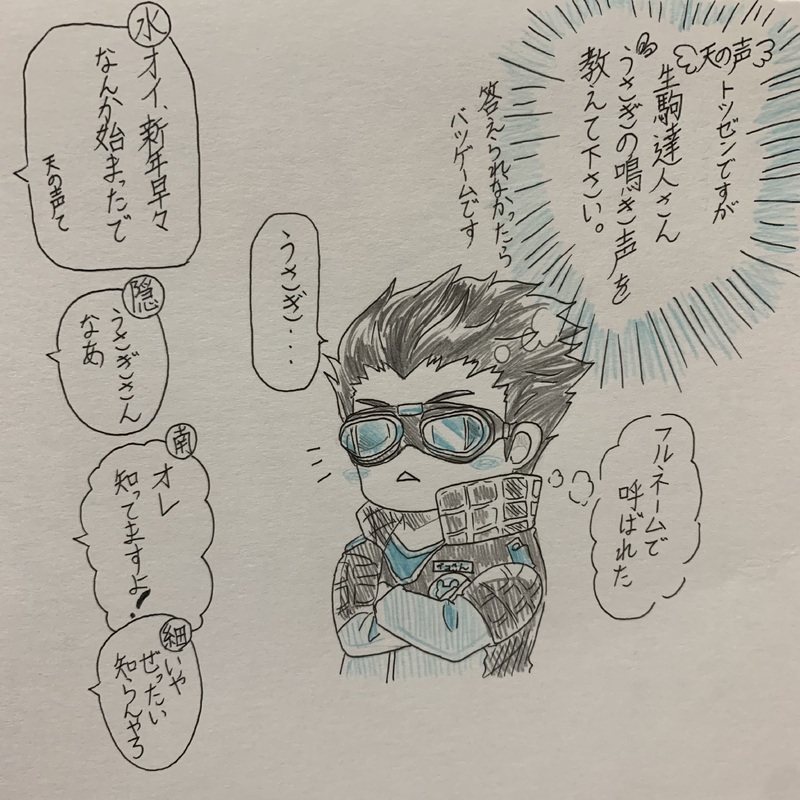 天の声
トツゼンですが
生駒達人さん
うさぎの鳴き声を
教えて下さい。
答えられなかったら
バツゲームです
フルネームで
呼ばれた
うさぎ・・・
水
オイ、新年早々
なんか始まったで
天の声て
隠
うさぎさん
なあ
南
オレ
知ってますよ!
細
いや
ぜったい
知らんやろ